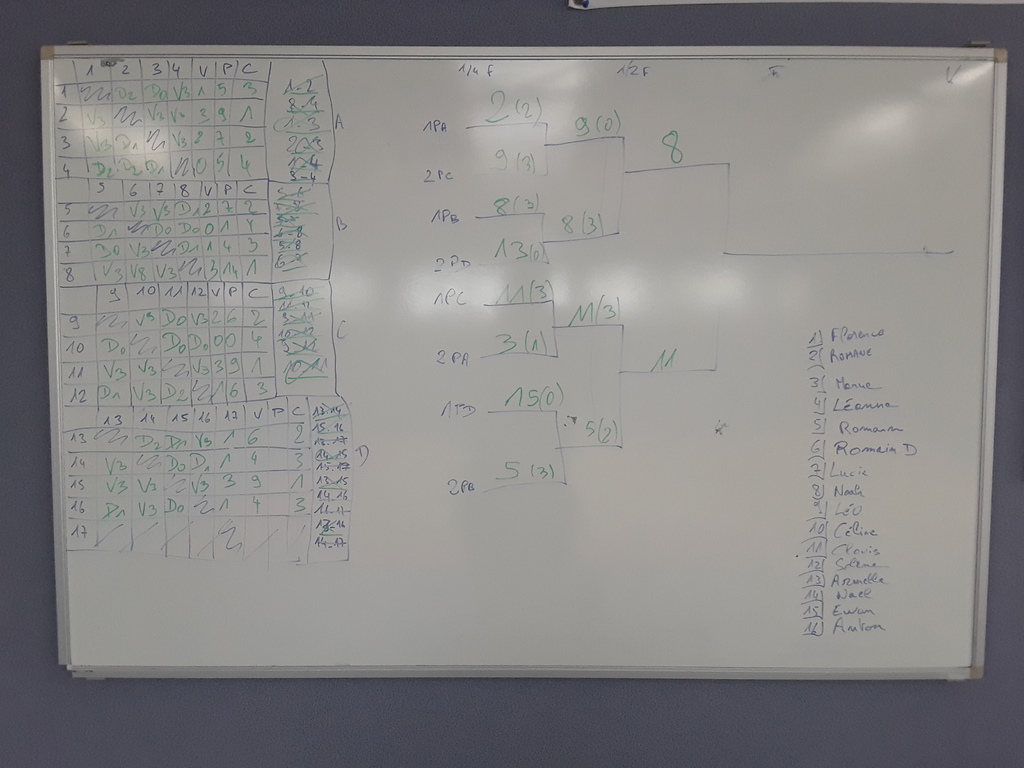 1 2 3 4 V P C
1 D2 D0 V3 1 5 3
2 V3 3 9 1
3 V3 D1 2 7 2
4 D2 D2 D1 0 5 4
1-2
1-3
A
5 6 7 8 V P C
5 V3 V3 D1 2 7 2
6 D1 D0 D0 0 1 4
7 D0 V3 D1 1 4 3
8 V3 V3 V3 3 14 1
B
9 10 11 12 V P C
9 V3 D0 V3 2 6 2
10 D0 D0 D0 0 0 4
11 V3 V3 V3 3 9 1
12 D1 V3 D2 1 6 3
9-10
C
13 14 15 16 17 V P C
13 D2 D1 V3 1 6 2
14 V3 D0 D1 1 4 3
15 V3 V3 V3 3 9 1
16 D1 V3 D0 1 4 3
17
13-14
15-16
14-15
13-15
14-16
14-17
D
1/4 F 1/2 F F V
1PA 2(2)
9(0)
2PC 9(3)
8
1PB 8(3)
8(3)
2PD 13(0)
1PC 11(3)
11(3)
2PA 3(1)
11
1PD 15(0)
5(2)
2PB 5(3)
1) Florence
2) ROMANE
3)
4) Léanna
5)
6) Romain D
7) Lucie
8) Noah
9) LÉO
10 Céline
11 Clovis
12
13 Armelle
14 Nael
15 Ewan
16 Anton